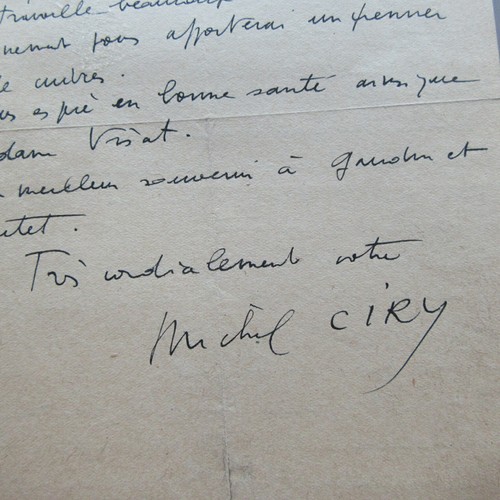 travaille beaucoup
vous apporterai un premier
de cuivres.
espère en bonne santé ainsi que
Madame Visat.
meilleur souvenir à et
Très cordialement votre
Michel CIRY